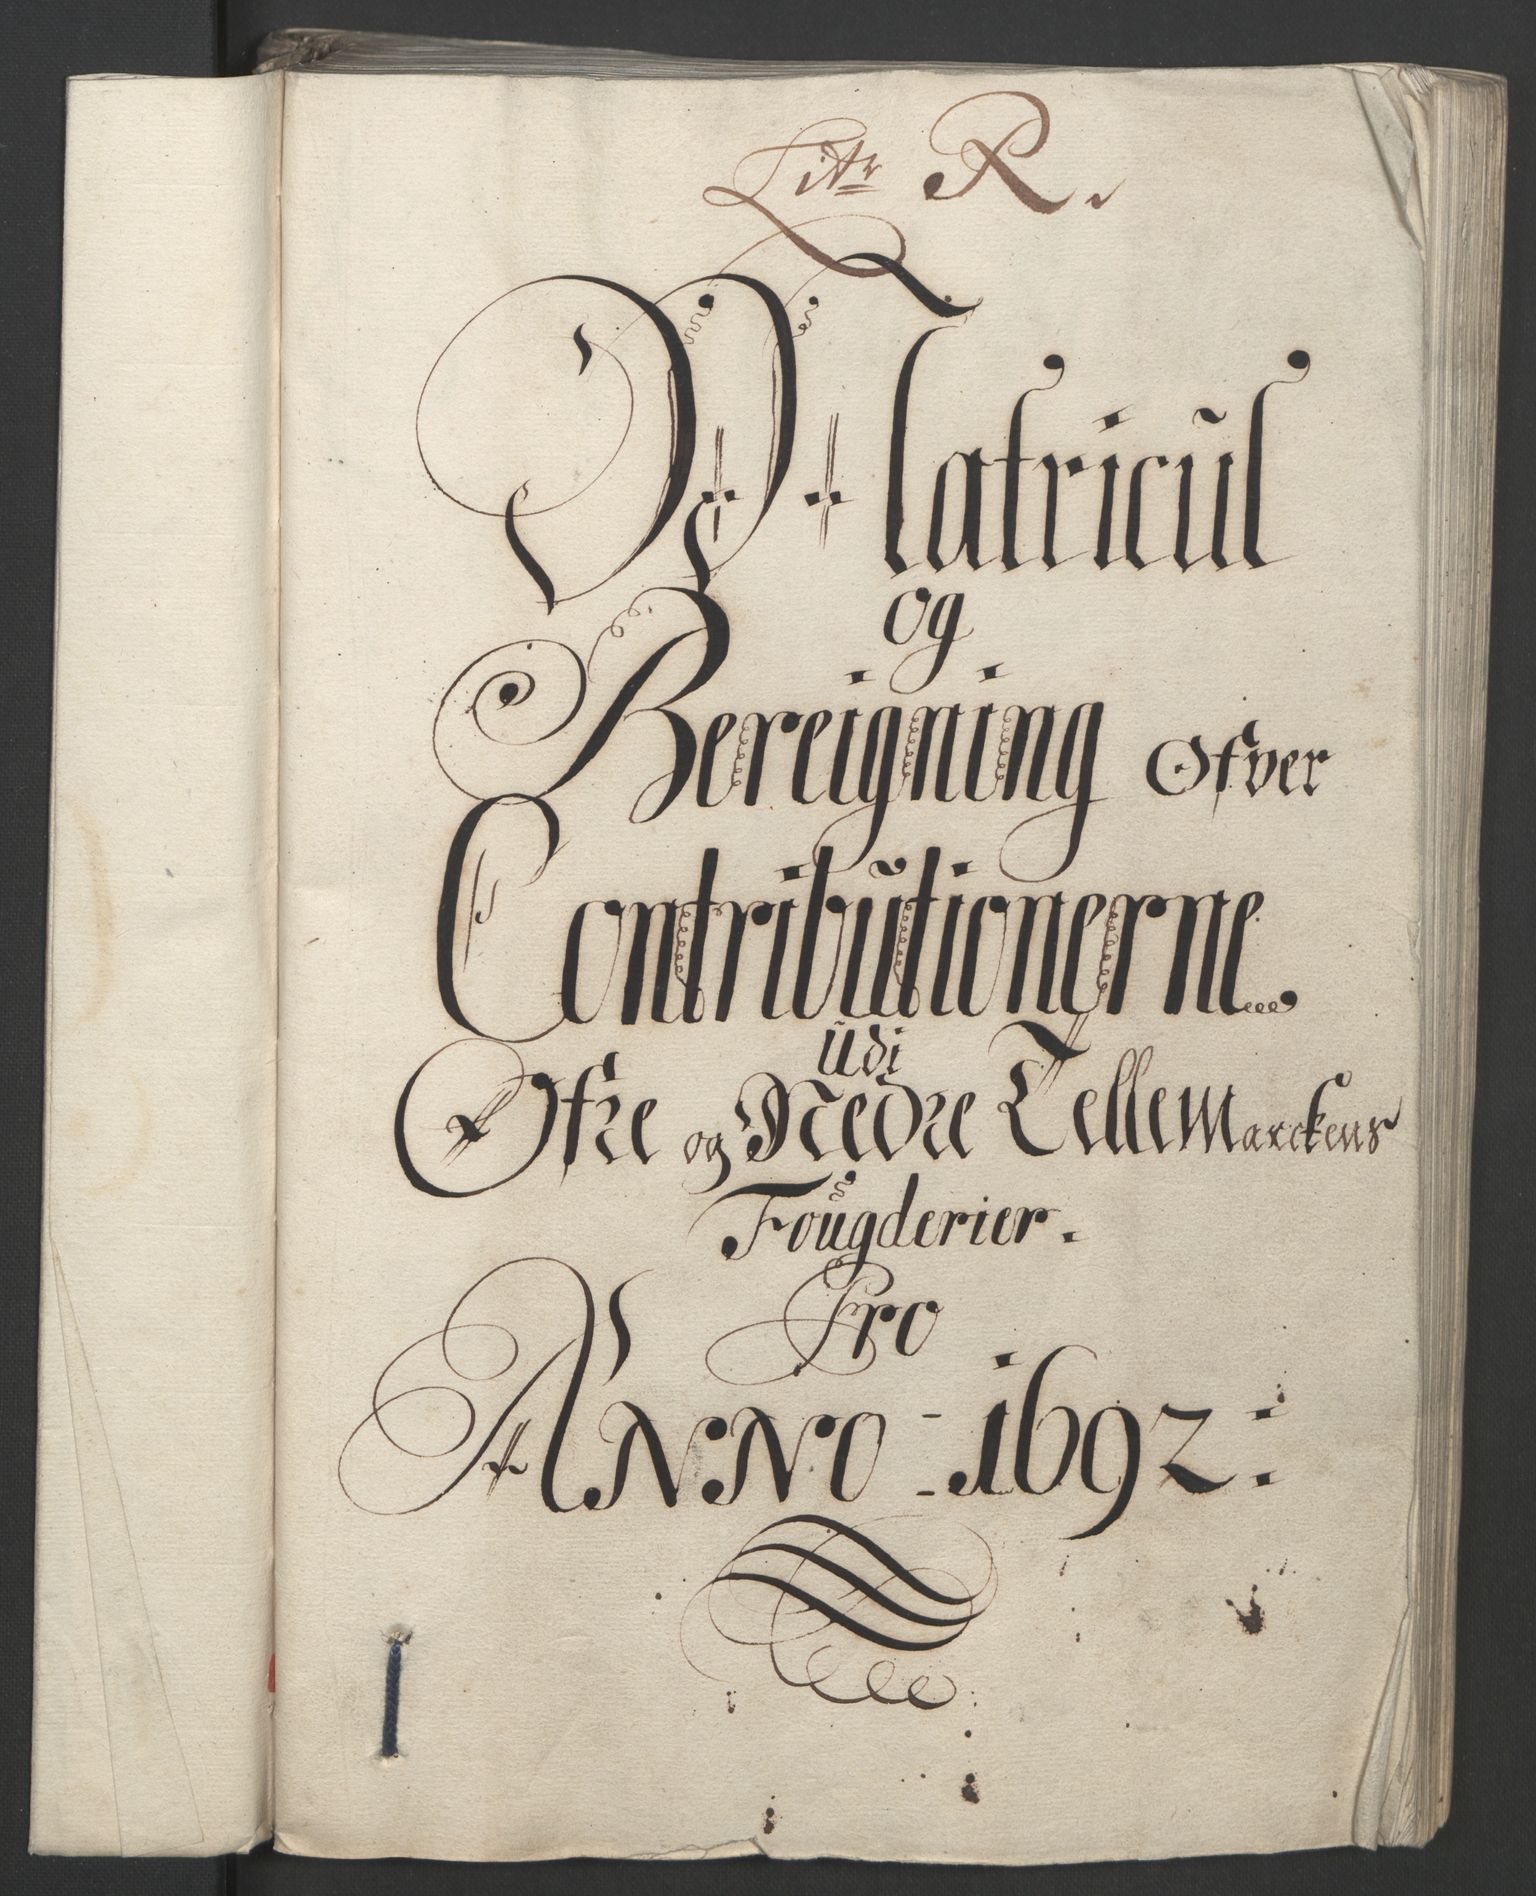 Litr R.
Matricul
og
Bereigning Ofver
Contributionerne
udi
Øfre og Nedre Tellemarckens
Fougderier.
Pro
Anno - 1692: